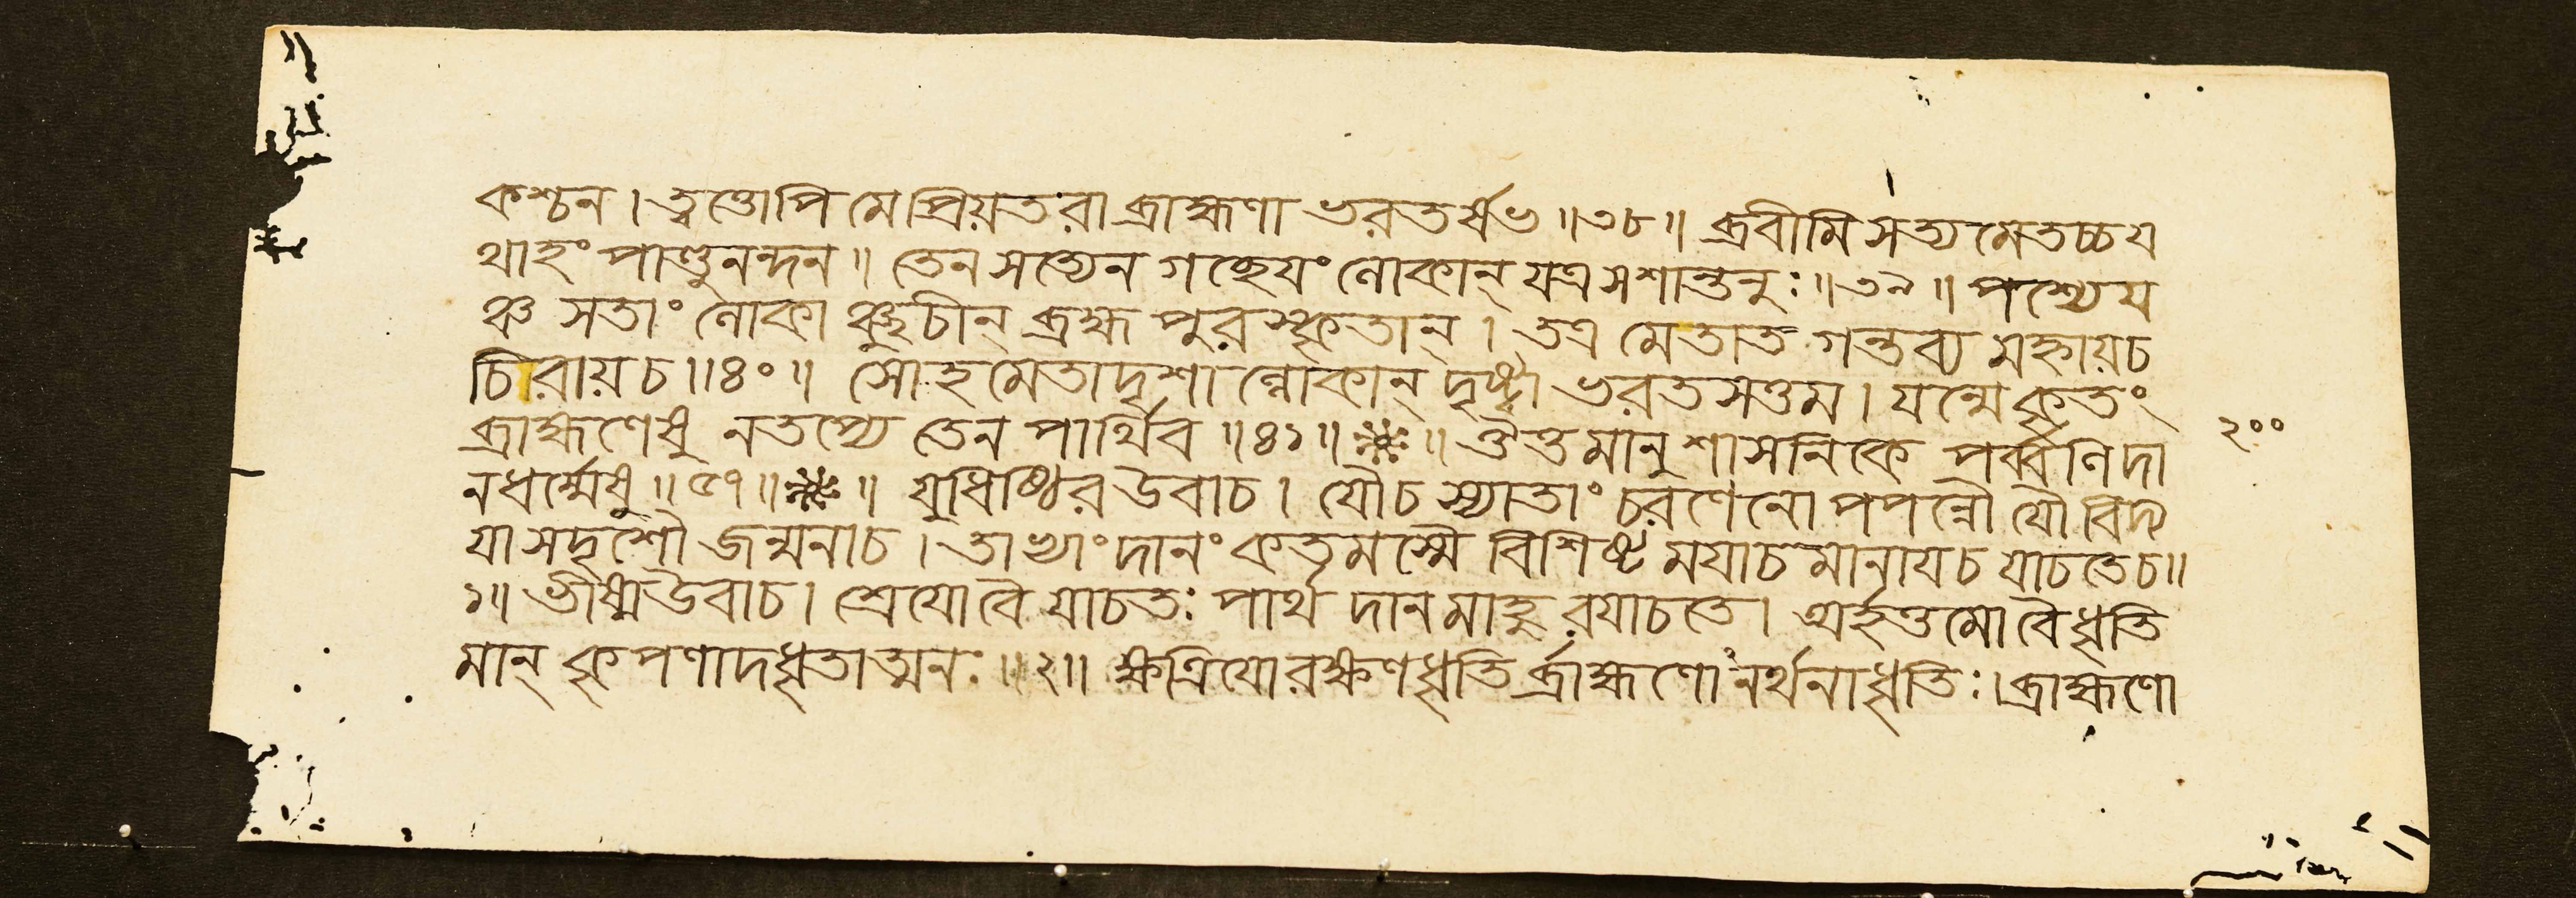 কশ্চন । ত্বত্তোপি মে প্রিয়তরা ব্রাহ্মণা ভরতর্ষভ ॥ ৩৮ ॥ ব্রবীমি সত্য মেতচ্চ য
থাহং পাণ্ডুনন্দন ॥ তেন সত্যেন গচ্ছেয়ং লোকান্ যত্র স শান্তনুঃ ॥ ৩৯ ॥ পশ্যেয
ঞ্চ সতাং লোকা ঞ্ছুচীন্ ব্রহ্ম পুরস্কৃতান্ । তত্র মে তাত গন্তব্য মহ্নায় চ
চিরায় চ ॥ ৪০ ॥ সোহ মেতাদৃশা ল্লোকান্ দৃষ্ট্বা ভরতসত্তম । যন্মে কৃতং
ব্রাহ্মণেষু ন তপ্যে তেন পার্থিব ॥ ৪১ ॥ ❈ ॥ ঔত্তমানুশাসনিকে পর্ব্বণি দা
নধর্ম্মেষু ॥ ৫৭ ॥ ❈ ॥ যুধিষ্ঠির উবাচ । যৌ চ স্যাতাং চরণেনোপপন্নৌ যৌ বিদ্য
যা সদৃশৌ জন্মনা চ । তাভ্যাং দানং কতমস্মৈ বিশিষ্ট মযাচমানায চ যাচতে চ ॥
১ ॥ ভীষ্ম উবাচ । শ্রেযো বৈ যাচতঃ পার্থ দান মাহু রযাচতে । অর্হত্তমো বৈ ধৃতি
মান্ কৃপণাদধৃতাত্মনঃ ॥ ২ ॥ ক্ষত্রিযো রক্ষণধৃতি র্ব্রাহ্মণোনর্থনাধৃতিঃ । ব্রাহ্মণো
২০০